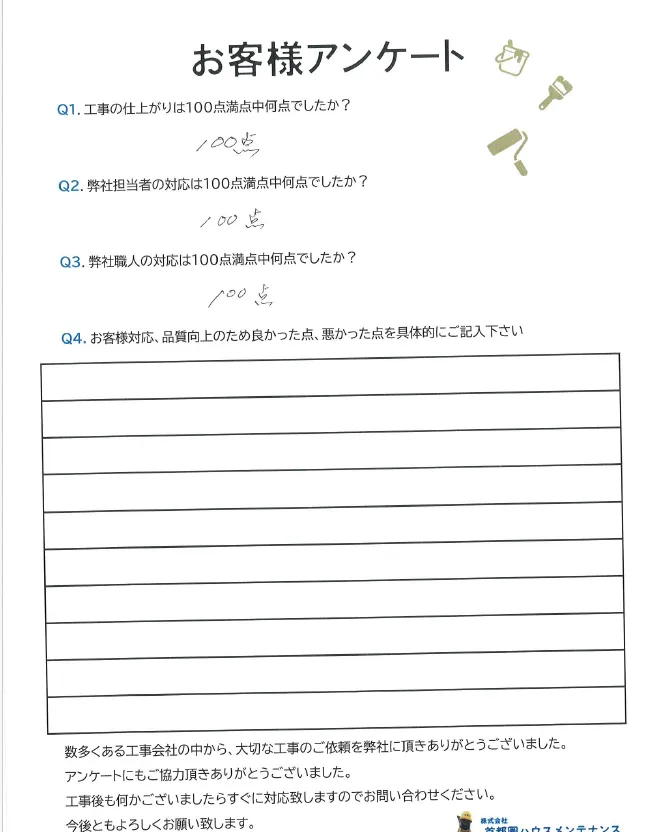 お客様アンケート
Q1. 工事の仕上がりは100点満点中何点でしたか？
100点
Q2. 弊社担当者の対応は100点満点中何点でしたか？
100点
Q3. 弊社職人の対応は100点満点中何点でしたか？
100点
Q4. お客様対応、品質向上のため良かった点、悪かった点を具体的にご記入下さい
数多くある工事会社の中から、大切な工事のご依頼を弊社に頂きありがとうございました。
アンケートにもご協力頂きありがとうございました。
工事後も何かございましたらすぐに対応致しますのでお問い合わせください。
今後ともよろしくお願い致します。
株式会社
首都圏ハウスメンテナンス